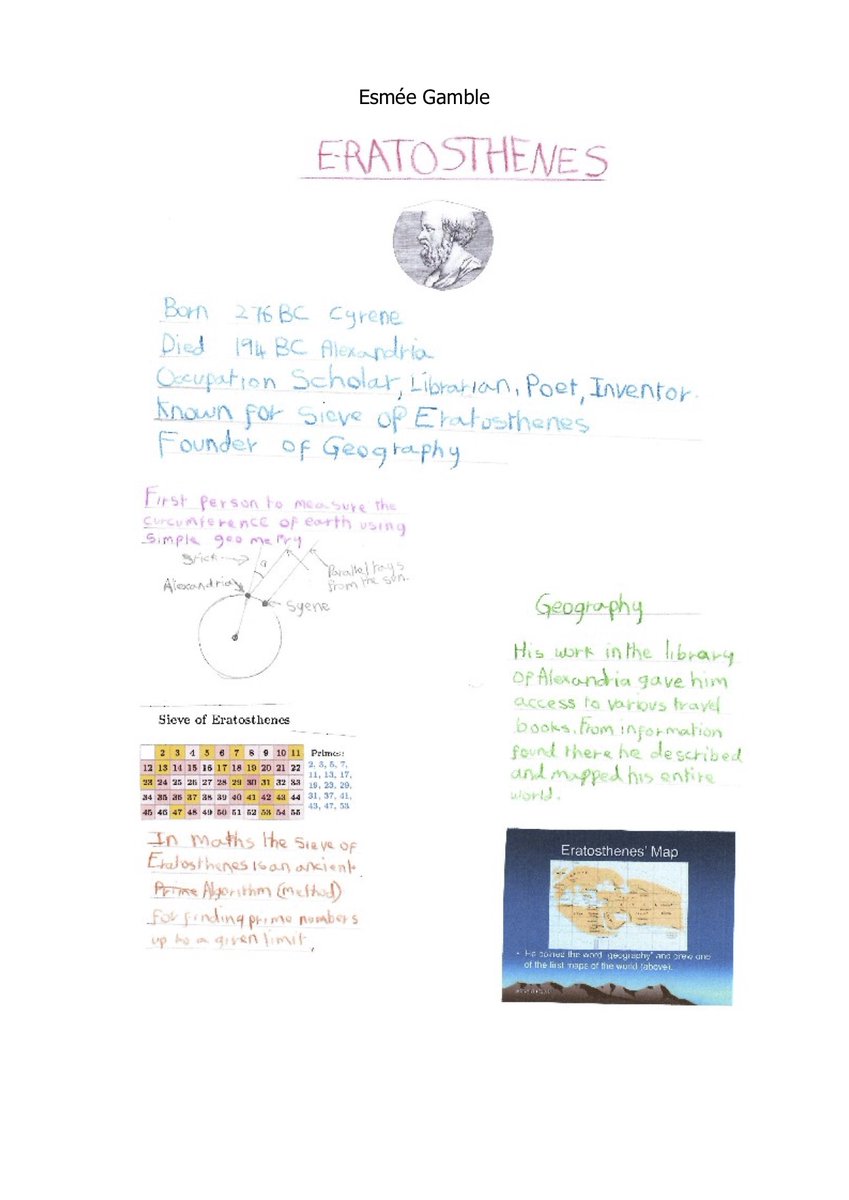 Esmée Gamble
ERATOSTHENES
Born 276 BC Cyrene
Died 194 BC Alexandria
Occupation Scholar, Librarian, Poet, Inventor.
Known for Sieve of Eratosthenes
Founder of Geography
First person to measure the
curcumference of earth using
simple geometry
Stick
a
Parallel rays
from the sun.
Alexandria
Syene
Sieve of Eratosthenes
2 3 4 5 6 7 8 9 10 11
12 13 14 15 16 17 18 19 20 21 22
23 24 25 26 27 28 29 30 31 32 33
34 35 36 37 38 39 40 41 42 43 44
45 46 47 48 49 50 51 52 53 54 55
Primes:
2, 3, 5, 7,
11, 13, 17,
19, 23, 29,
31, 37, 41,
43, 47, 53
In maths the sieve of
Eratosthenes is an ancient
Prime Algorithm (method)
for finding prime numbers
up to a given limit.
Geography
His work in the library
of Alexandria gave him
access to various travel
books. From information
found there he described
and mapped his entire
world.
Eratosthenes' Map
• He coined the word "geography" and drew one
of the first maps of the world (above).